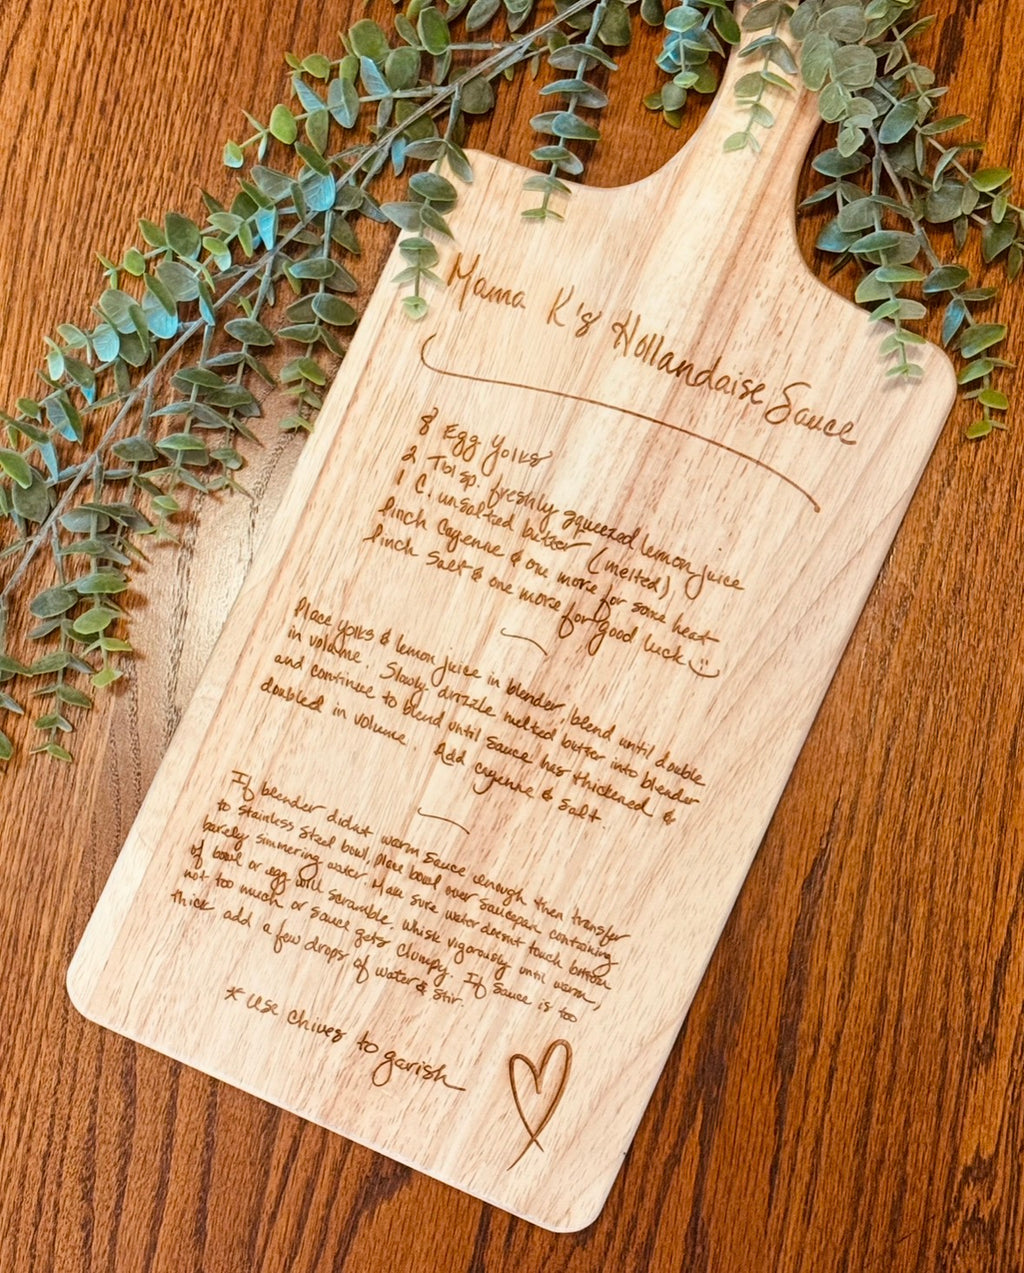 Mama K's Hollandaise Sauce
8 Egg Yolks
2 Tblsp. freshly squeezed lemon juice
1 C. unsalted butter (melted)
Pinch Cayenne & one more for some heat
Pinch Salt & one more for good luck
Place yolks & lemon juice in blender, blend until double
in volume. Slowly drizzle melted butter into blender
and continue to blend until sauce has thickened &
doubled in volume. Add cayenne & salt.
If blender didn't warm sauce enough then transfer
to stainless steel bowl, place bowl over saucepan containing
barely simmering water. Make sure water doesnt touch bottom
of bowl or egg will scramble. Whisk vigorously until warm,
not too much or sauce gets clumpy. If sauce is too
thick add a few drops of water & stir.
* Use chives to garish